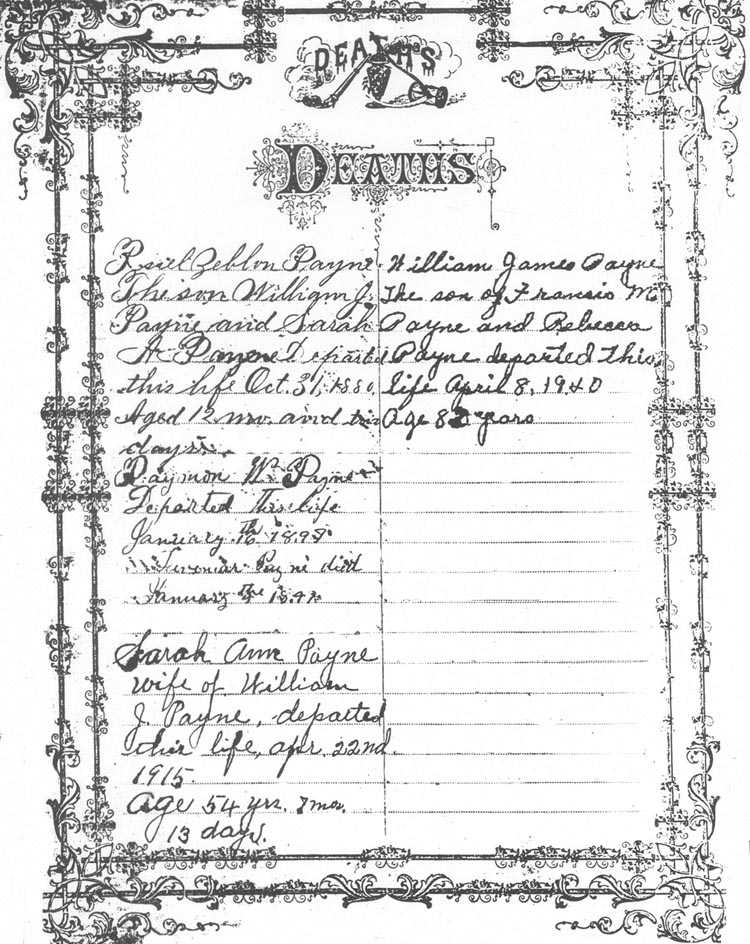 DEATHS
DEATHS
Zeblon Payne
The son William J.
Payne and Sarah
A Departed
this life Oct. 31, 1880
Aged 12 mo. and
days
Raymon W. Payne
Departed This life
January 16th
Payne died
January
Sarah Ann Payne
wife of William
J. Payne, departed
this life, apr. 22nd.
1915.
Age 54 yrs. 7 mos.
13 days.
William James Payne
The son of Francis M.
Payne and Rebecca
Payne departed this
life April 8, 1940
Age years